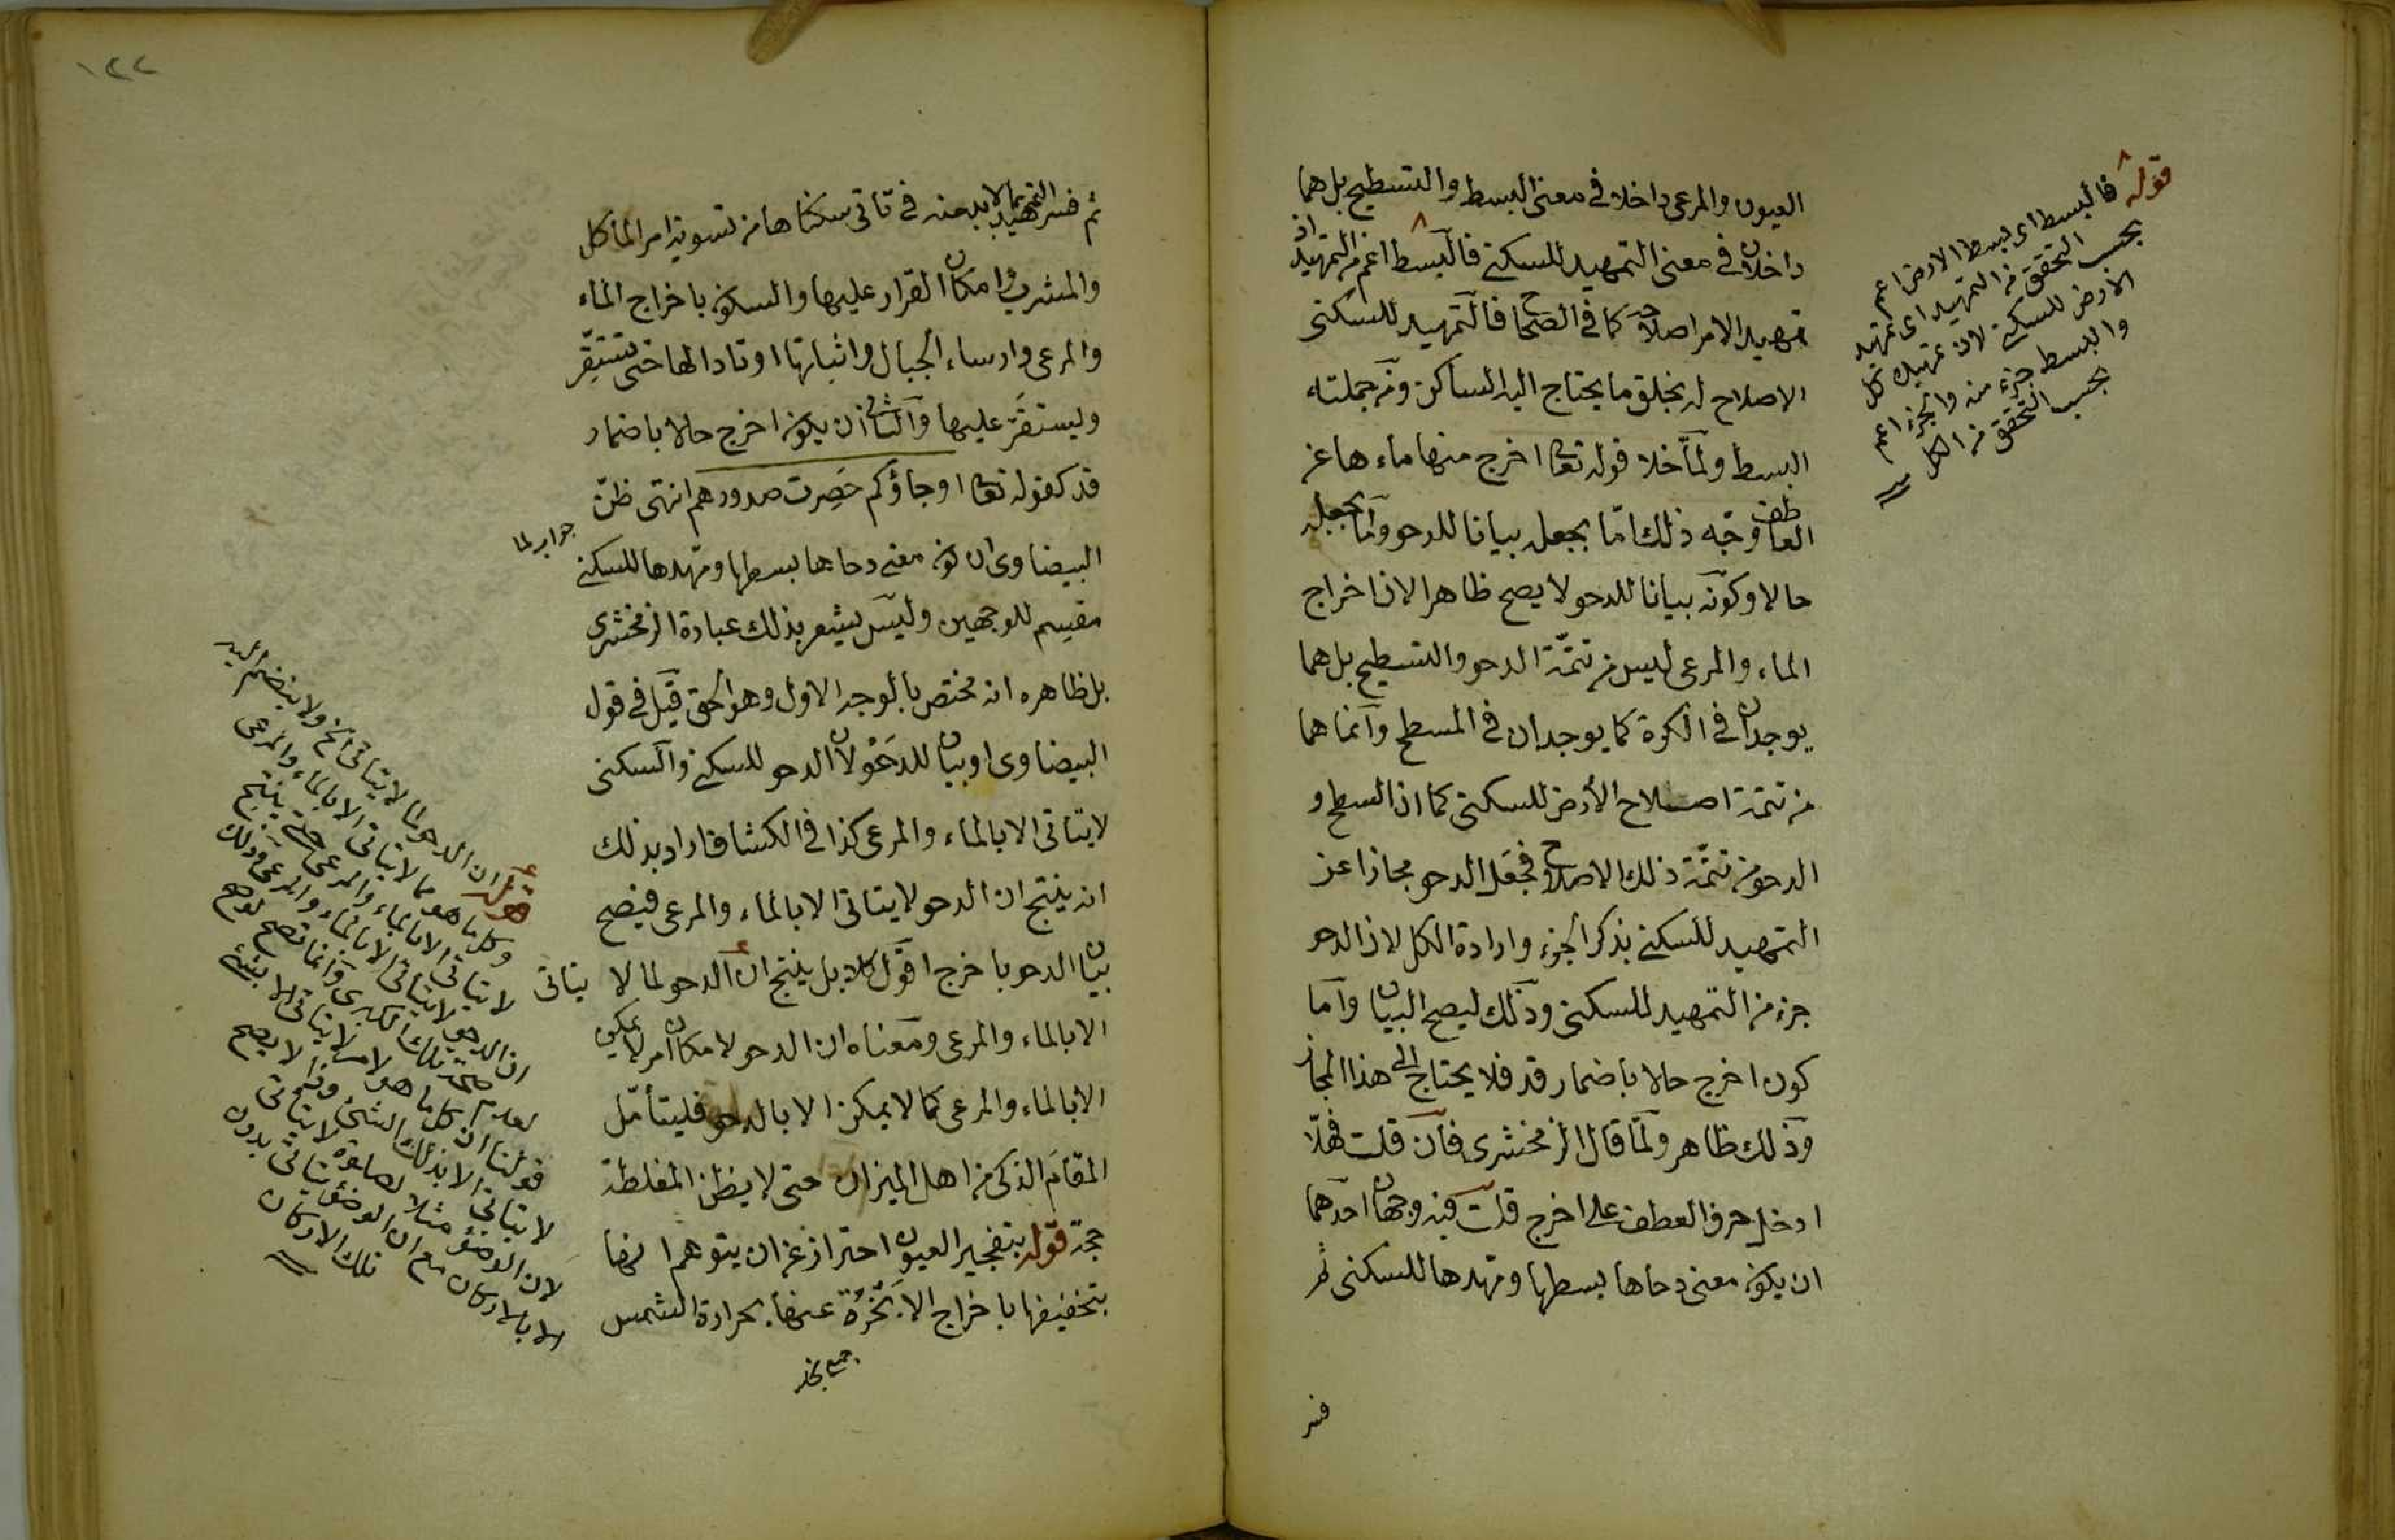 العيون والمرعى داخلا في معنى البسط والتسطيح بل هما
داخلان في معنى التمهيد للسكنى فالبسط اعم من التمهيد اذ
تمهيد الامر اصلاحه كما في الصحاح فالتمهيد للسكنى
الاصلاح له بخلق ما يحتاج اليه الساكن ومن جملته
البسط ولما خلا قوله تعا اخرج منها ماءها عن
العاطف وجّه ذلك امّا بجعله بيانا للدحو وامّا بجعله
حالا وكونه بيانا للدحو لا يصح ظاهرا لان اخراج
الماء والمرعى ليس من تتمّة الدحو والتسطيح بل هما
يوجدان في الكرة كما يوجدان في المسطح وانما هما
من تتمّة اصلاح الأرض للسكنى كما ان السطح و
الدحو من تتمّة ذلك الاصلاح فجعل الدحو مجازا عن
التمهيد للسكنى بذكر الجزء وارادة الكل لان الدحو
جزء من التمهيد للسكنى وذلك ليصح البيان واما
كون اخرج حالا باضمار قد فلا يحتاج الى هذا المجاز
وذلك ظاهر ولمّا قال الزمخشرى فان قلت فهلّا
ادخل حرف العطف على اخرج قلت فيه وجهان احدهما
ان يكون معنى دحاها بسطها ومهدها للسكنى ثم
فسر
قوله فالبسط اى بسط الارض اعم
بحسب التحقق من التمهيد اى تمهيد
الارض للسكنى لان تمهيدك كل
والبسط جزء منه والجزء اعم
بحسب التحقق من الكل
١٢٢
ثم فسر التمهيد بما لا بد منه في تأتى سكناها من تسوية امر المأكل
والمشرب وامكان القرار عليها والسكون باخراج الماء
والمرعى وارساء الجبال واثباتها اوتادا لها حتى تستقرّ
ويستقرّ عليها والثانى ان يكون اخرج حالا باضمار
قد كقوله تعا او جاؤكم حَصِرت صدورهم انتهى ظنّ
جواب لما
البيضاوى ان كون معنى دحاها بسطها ومهدها للسكنى
مقسم للوجهين وليس يشعر بذلك عبارة الزمخشرى
بل ظاهره انه مختص بالوجه الاول وهو الحق قيل في قول
البيضاوى او بيان للدحو لان الدحو للسكنى والسكنى
لا يتاتى الا بالماء والمرعى كذا في الكشاف اراد بذلك
انه ينتج ان الدحو لا يتاتى الا بالماء والمرعى فيصح
بيان الدحو باخرج اقول كلا بل ينتج ان الدحو لما لا يتاتى
الا بالماء والمرعى ومعناه ان الدحو لامكان امر لا يمكن
الا بالماء والمرعى كما لا يمكن الا بالدحو فليتأمّل
المقام الذكى من اهل الميزان حتى لا يظن المغلطة
حجة قوله بتفجير العيون احتراز عن ان يتوهم اخراجها
بتخفيفها باخراج الابخرة عنها بحرارة الشمس
جمع بخار
قوله ان الدحو لما لا يتاتى الخ ولا ينضم اليه
وكل ما هو مما لا يتاتى الا بالماء والمرعى
لا يتاتى الا بالماء والمرعى حتى ينتج
ان الدحو لا يتاتى الا بالماء والمرعى وذلك
لعدم صحة تلك الكبرى وانما تصح لو صح
قولنا ان كل ما هو لامر لا يتاتى الا بشئ
لا يتاتى الا بذلك الشئ وذا لا يصح
لان الوضوء مثلا لصلوة لا يتاتى
الا بالاركان مع ان الوضوء يتاتى بدون
تلك الاركان